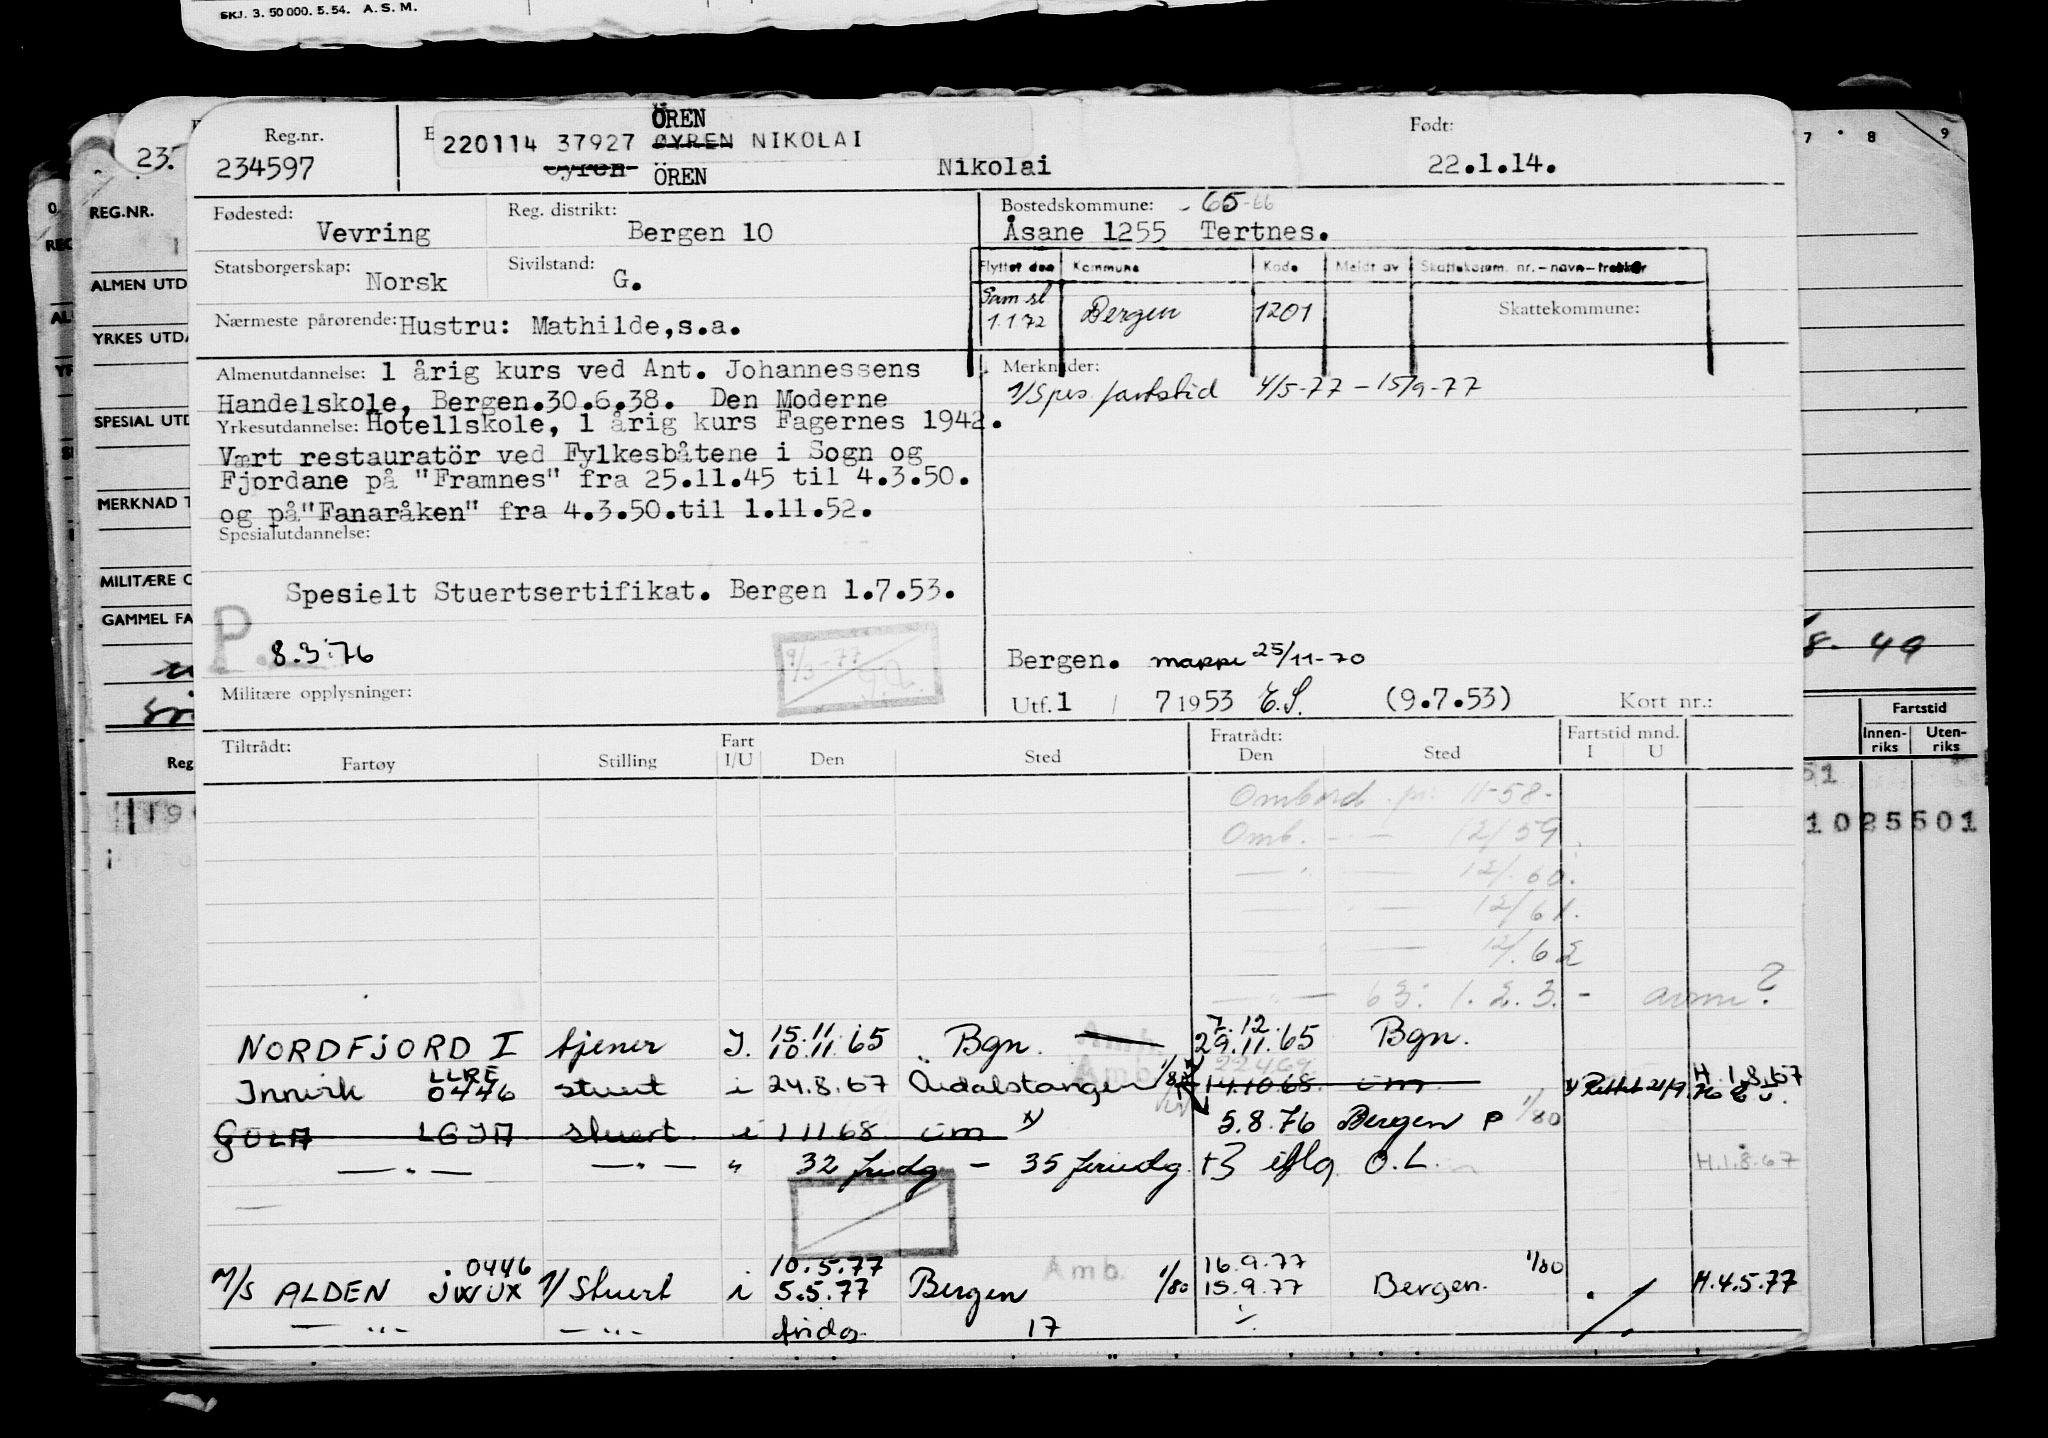 SKJ. 3. 50 000. 5. 54. A. S. M.
Reg.nr.
234597
ÖREN
220114 37927 ØYREN NIKOLAI
Öyren ÖREN Nikolai
Født:
22.1.14.
Fødested: Vevring
Reg. distrikt: Bergen 10
Bostedskommune: 65-66
Åsane 1255 Tertnes.
Statsborgerskap: Norsk
Sivilstand: G.
Flyttet den Kommune Kode Meldt av Skattekomm. nr.-navn-trekker
Sam sl
1.1.72 Bergen 1201
Skattekommune:
Nærmeste pårørende: Hustru: Mathilde, s.a.
Almenutdannelse: 1 årig kurs ved Ant. Johannessens
Handelskole, Bergen.30.6.38. Den Moderne
Yrkesutdannelse: Hotellskole, 1 årig kurs Fagernes 1942.
Vært restauratör ved Fylkesbåtene i Sogn og
Fjordane på "Framnes" fra 25.11.45 til 4.3.50.
og på "Fanaråken" fra 4.3.50.til 1.11.52.
Spesialutdannelse:
Spesielt Stuertsertifikat. Bergen 1.7.53.
P.
8.3.76
9/3-77
Militære opplysninger:
Merknader:
1/ Spes fartstid 4/5-77 - 15/9-77
Bergen. mappe 25/11-70
Utf. 1 / 7 1953 E.S. (9.7.53) Kort nr.:
Tiltrådt: Fratrådt: Fartstid mnd.
Fartøy Stilling Fart I/U Den Sted Den Sted I U
Ombord pr. 11-58.
Omb. - - 12/59.
- " - 12/.60.
- " - 12/61.
- 12/.62
- " - 63: 1.2.3. - avm?
15.11. 7.12.
NORDFJORD I tjener I. 10.11.65 Bgn. 29.11.65 Bgn.
LLRE Amb. 22469
Innvik 0446 stuert i 24.8.67 Årdalstangen 1/80 14.10.68 um H.1.8.67
5.8.76 Bergen P 1/80
GULA LGJA stuert i 1 11 68 um
- " - - " - " 32 fridg - 35 feriedg. +3 O.L. H.1.8.67
0446 10.5.77 16.9.77
M/S ALDEN JWUX 1/ Stuert i 5.5.77 Bergen Amb. 1/80 15.9.77 Bergen. 1/80 H.4.5.77
- " - - " - fridg. 17
REG.NR.
ALMEN UTD
YRKES UTDA
SPESIAL UTD
MERKNAD T
MILITÆRE O
GAMMEL FA
Reg
7 8 9
8-49
Fartstid
Innen-riks Uten-riks
51
1025501